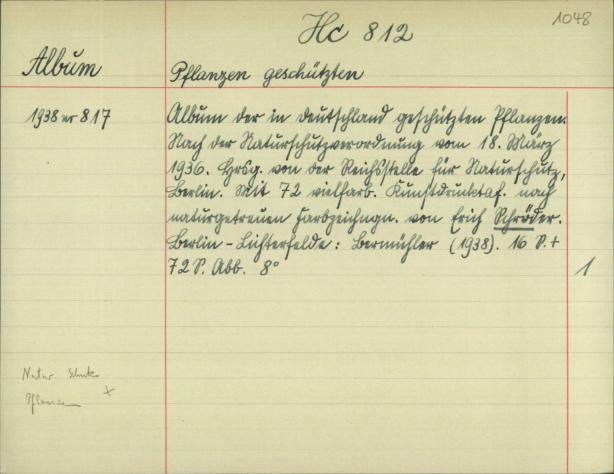 1048
Hc 812
Album
Pflanzen geschützten
1938 nr 817
Album der in Deutschland geschützten Pflanzen.
Nach der Naturschutzverordnung vom 18. März
1936. Hrsg. von der Reichsstelle für Naturschutz,
Berlin. Mit 72 vielfarb. Kunstdrucktaf. nach
naturgetreuen Farbzeichngn. von Erich Schröder.
Berlin-Lichterfelde: Bermühler (1938). 16 S. +
72 S. Abb. 8°
1
Natur Schutz
Pflanzen
x